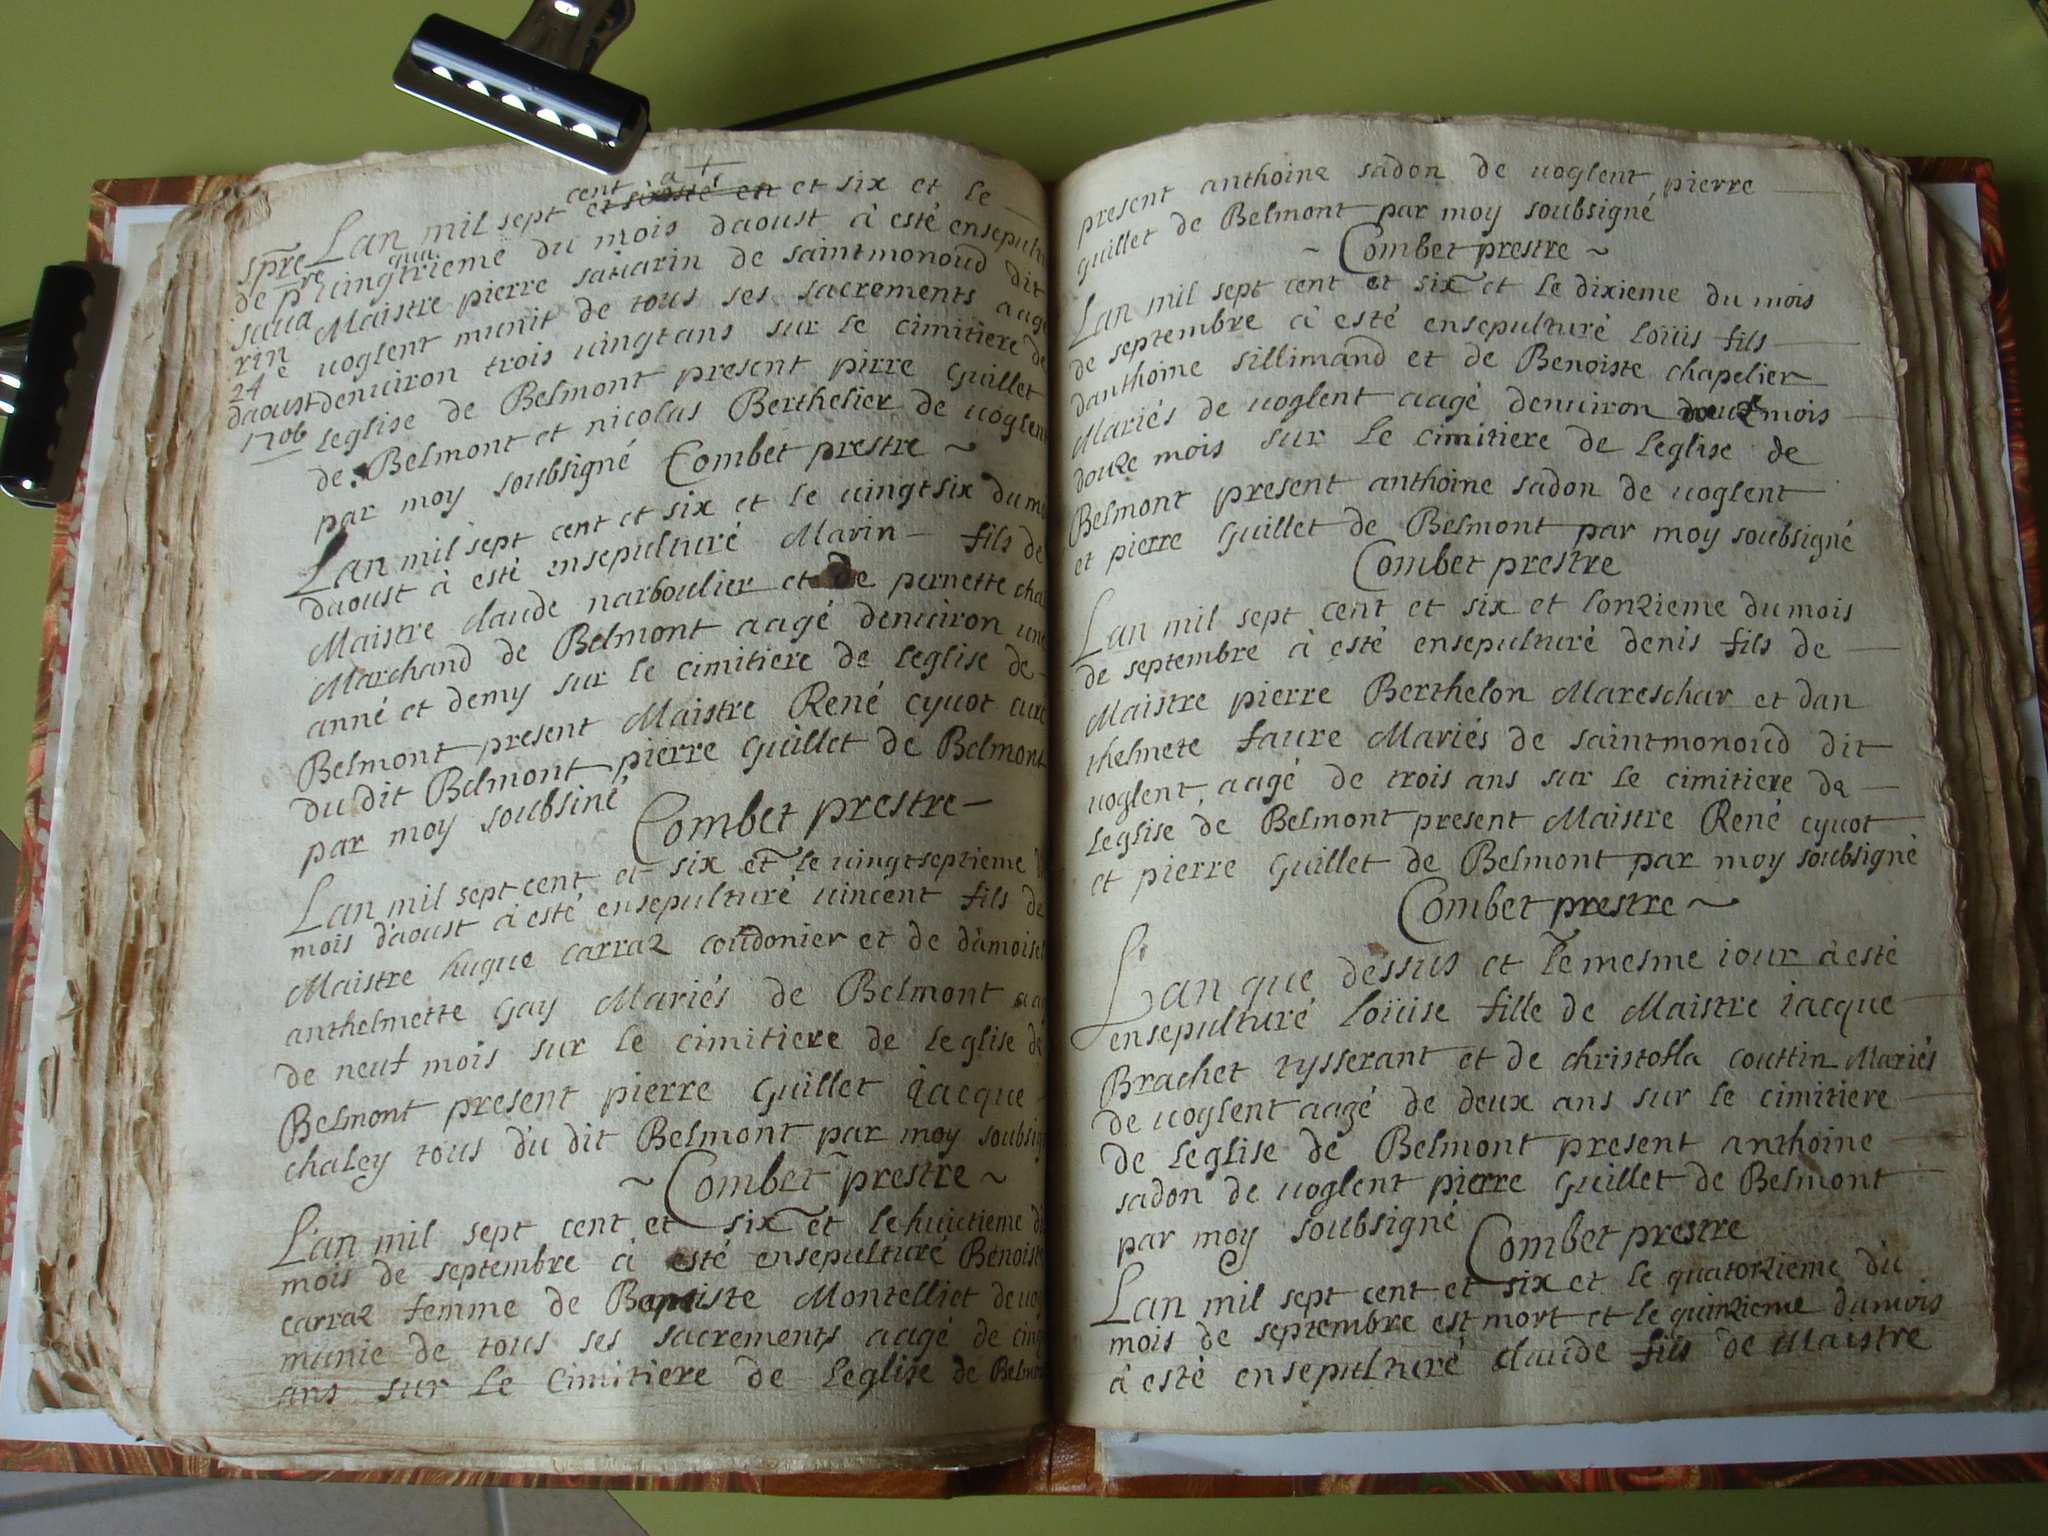 spre
de prre
saua
rin
24e
daoust
1706
Lan mil sept cent et six et le
vingtrieme du mois daoust à esté ensepultu
Maistre pierre sauarin de saintmonoud dit
uoglent munit de tous ses sacrements aagé
denuiron trois uingt ans sur le cimitiere de
leglise de Belmont present pirre Guillet
de Belmont et nicolas Berthelier de uoglent
par moy soubsigné Combet prestre
Lan mil sept cent et six et le uingtsix du mo
daoust à esté ensepulturé Marin fils de
Maistre claude narboulier et de pernette cha
Marchand de Belmont aagé denuiron une
anné et demy sur le cimitiere de leglise de
Belmont present Maistre René cyuot curé
du dit Belmont pierre Guillet de Belmont
par moy soubsiné
Combet prestre
Lan mil sept cent et six et le uingtseptieme
mois d'aoust à esté ensepulturé uincent fils de
Maistre hugue carraz coudonier et de damoise
anthelmette Gay Mariés de Belmont aa
de neuf mois sur le cimitiere de leglise de
Belmont present pierre Guillet iacque
chaley tous du dit Belmont par moy soubsig
~ Combet prestre ~
L'an mil sept cent et six et le huictieme d
mois de septembre à esté ensepulturé Benoiste
carraz femme de Baptiste Montelliet de uog
munie de tous ses sacrements aagé de cinq
ans sur le cimitiere de leglise de Belmo
present anthoine sadon de uoglent pierre
guillet de Belmont par moy soubsigné
~ Combet prestre ~
Lan mil sept cent et six et le dixieme du mois
de septembre à esté ensepulturé loüis fils
danthoine sillimand et de Benoiste chapelier
Mariés de uoglent aagé denuiron mois
douze mois sur le cimitiere de leglise de
Belmont present anthoine sadon de uoglent
et pierre Guillet de Belmont par moy soubsigné
Combet prestre
Lan mil sept cent et six et lonzieme du mois
de septembre à esté ensepulturé denis fils de
Maistre pierre Berthelon Mareschar et dan
thelmete faure Mariés de saintmonoud dit
uoglent, aagé de trois ans sur le cimitiere de
leglise de Belmont present Maistre René cyuot
et pierre Guillet de Belmont par moy soubsigné
Combet prestre ~
Lan que dessus et le mesme iour à esté
ensepulturé loüise fille de Maistre iacque
Brachet tysserant et de christofla couttin Mariés
de uoglent aagé de deux ans sur le cimitiere
de leglise de Belmont present anthoine
sadon de uoglent pierre Guillet de Belmont
par moy soubsigné
Combet prestre
Lan mil sept cent et six et le quatorzieme du
mois de septembre est mort et le quinzieme du mois
à esté ensepulturé claude fils de Maistre